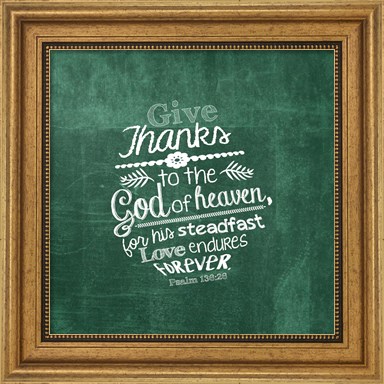 Give
Thanks
to the
God of heaven,
for his steadfast
Love endures
FOREVER.
Psalm 136:26